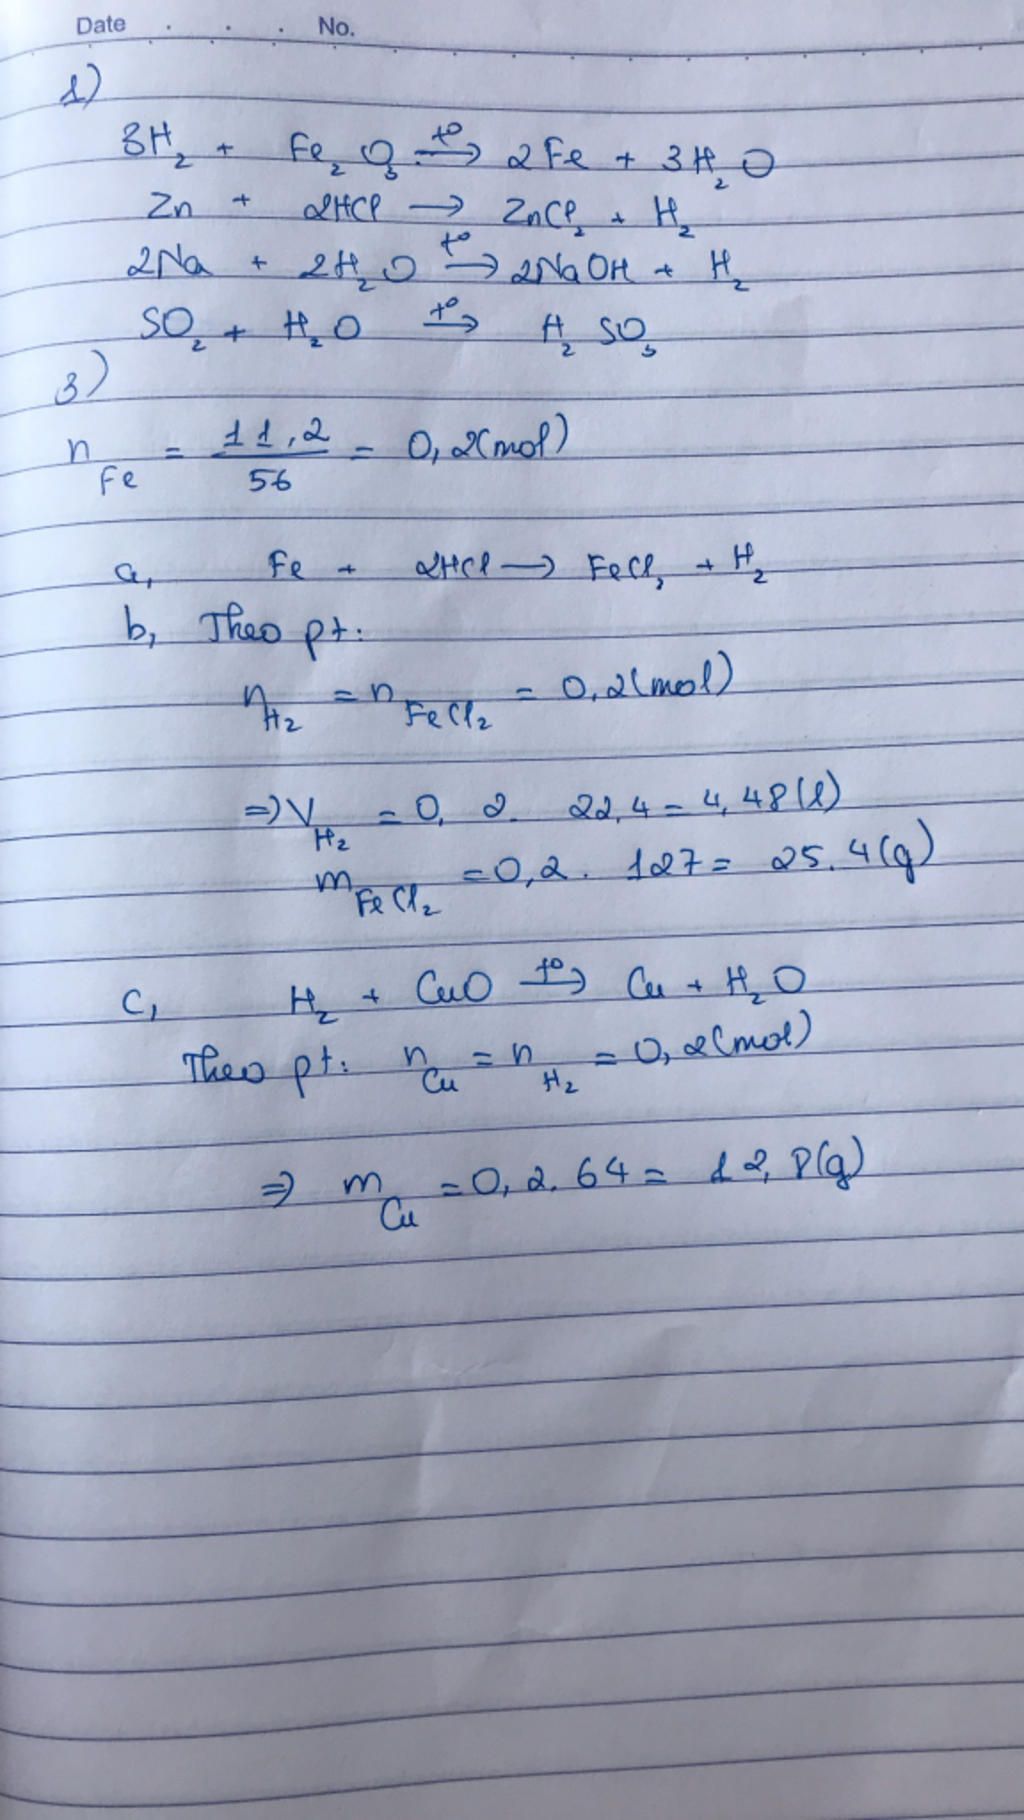 Date . . . No.
1)
3H₂ + Fe₂O₃ t⁰→ 2Fe + 3H₂O
Zn + 2HCl → ZnCl₂ + H₂
2Na + 2H₂O t⁰→ 2NaOH + H₂
SO₂ + H₂O t⁰→ H₂SO₃
3)
n Fe = 11,2/56 = 0,2(mol)
a, Fe + 2HCl → FeCl₂ + H₂
b, Theo pt:
n H₂ = n FeCl₂ = 0,2(mol)
=> V H₂ = 0,2. 22,4 = 4,48(l)
m FeCl₂ = 0,2. 127 = 25.4(g)
c, H₂ + CuO t⁰→ Cu + H₂O
Theo pt: n Cu = n H₂ = 0,2(mol)
=> m Cu = 0,2.64 = 12,8(g)